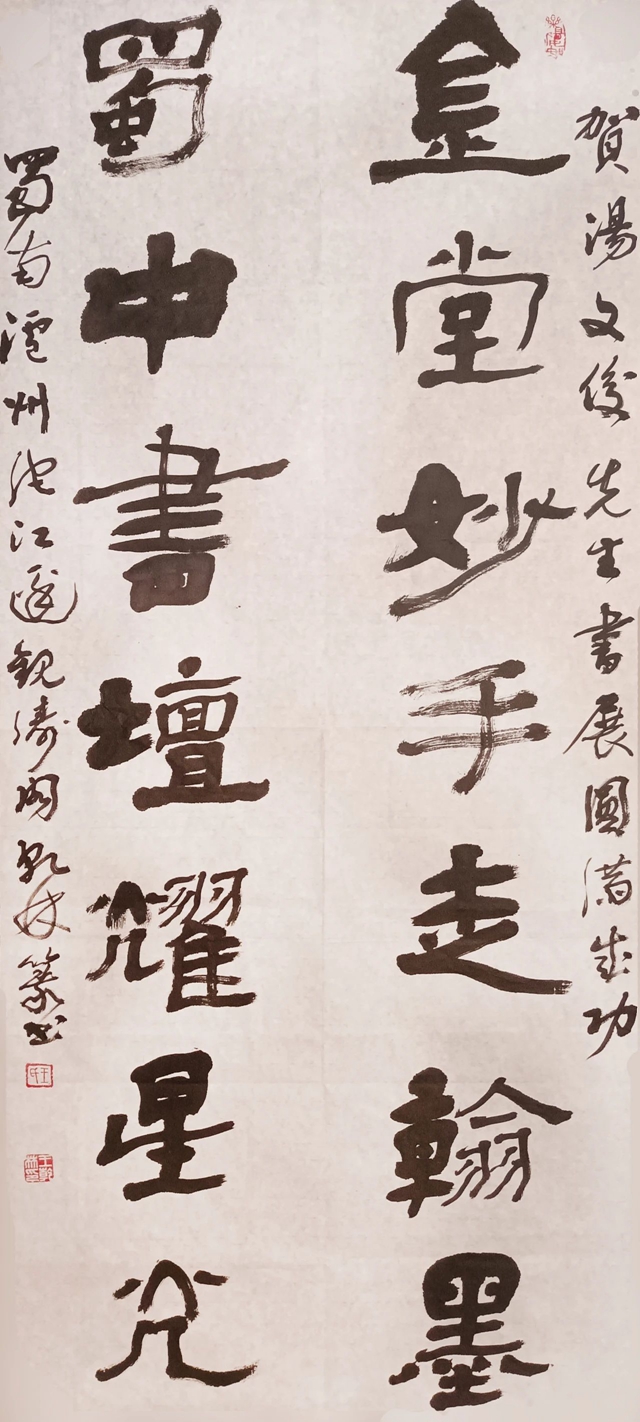 賀湯文俊先生書展圓滿成功
金堂妙手走翰墨
蜀中書壇耀星光
蜀南瀘州沱江邊觀濤閣乾 篆书